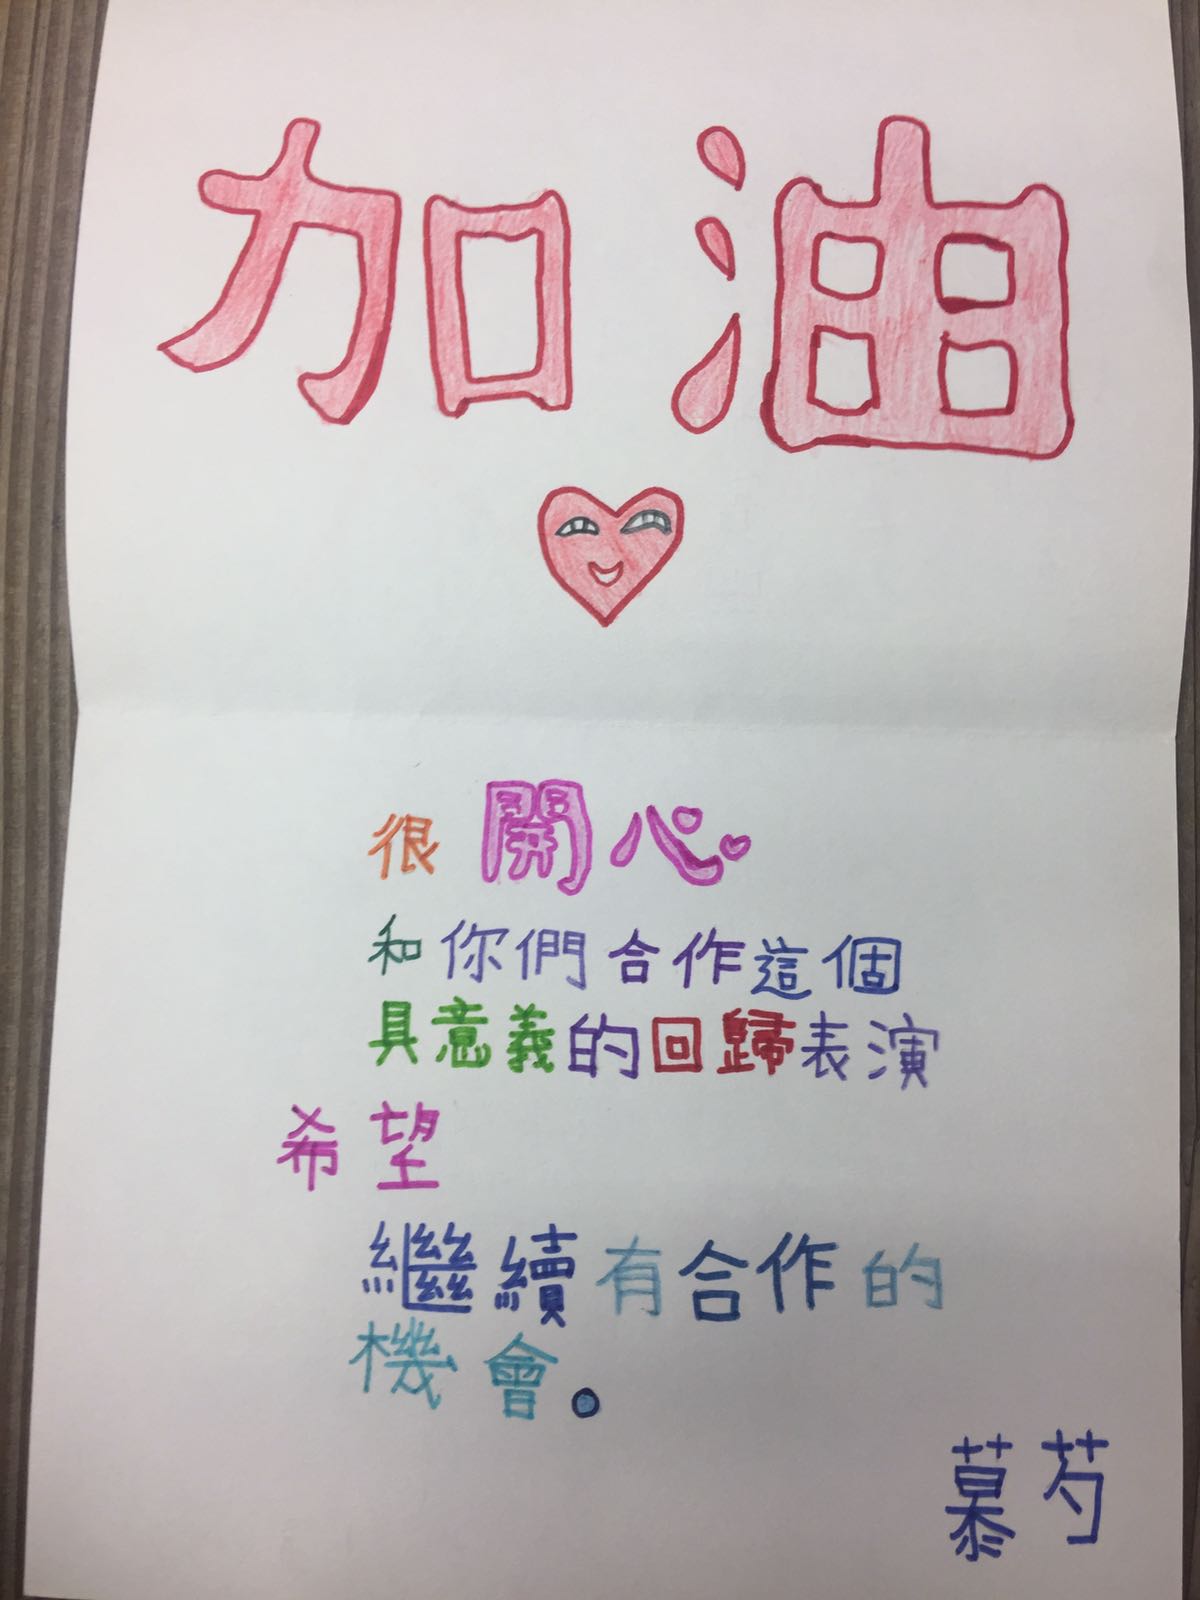 加油
很開心
和你們合作這個
具意義的回歸表演
希望
繼續有合作的
機會。
慕芍